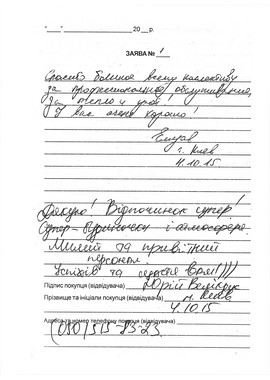 "____" ________ 20__р.
ЗАЯВА № 1
Спасибо большое всему коллективу
за профессиональное обслуживание,
За тепло и уют!
У вас очень хорошо!
г. Киев
4.10.15
Дякую! Відпочинок супер!
Супер-відпочинок і атмосфера.
Милий та привітний
персонал.
Успіхів та
Підпис покупця (відвідувача) Юрій
Прізвище та ініціали покупця (відвідувача) м. Київ
4.10.15
Адреса та номер телефону покупця (відвідувача)